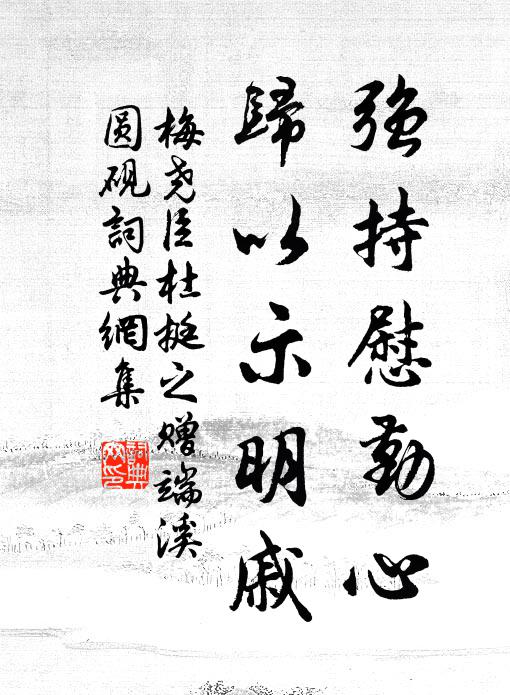 強持慰勤心
歸以示明戚
梅堯臣杜挺之贈端溪
圓硯詞典網集
詞典